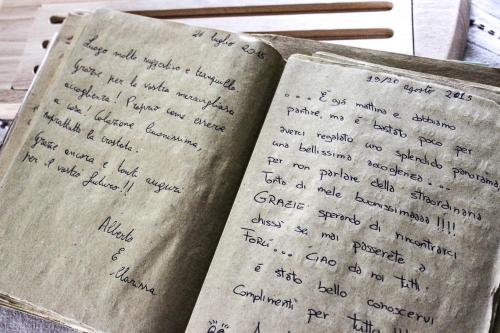 21 luglio 2015
Luogo molto suggestivo e tranquillo
Grazie per la vostra meravigliosa
accoglienza! Proprio come essere
a casa! Colazione buonissima,
soprattutto la crostata.
Grazie ancora e tanti auguri
per il vostro futuro!!
Alberto
E
Clarissa
19/20 agosto 2015
... È già mattina e dobbiamo
partire, ma è bastato poco per
averci regalato uno splendido panorama
una bellissima accoglienza...
per non parlare della straordinaria
Torta di mele buonissimaaaa !!!!
GRAZIE sperando di rincontrarci
chissà se mai passerete a
Forlì... CIAO da noi tutti.
è stato bello conoscervi
Complimenti per tutto !!!!